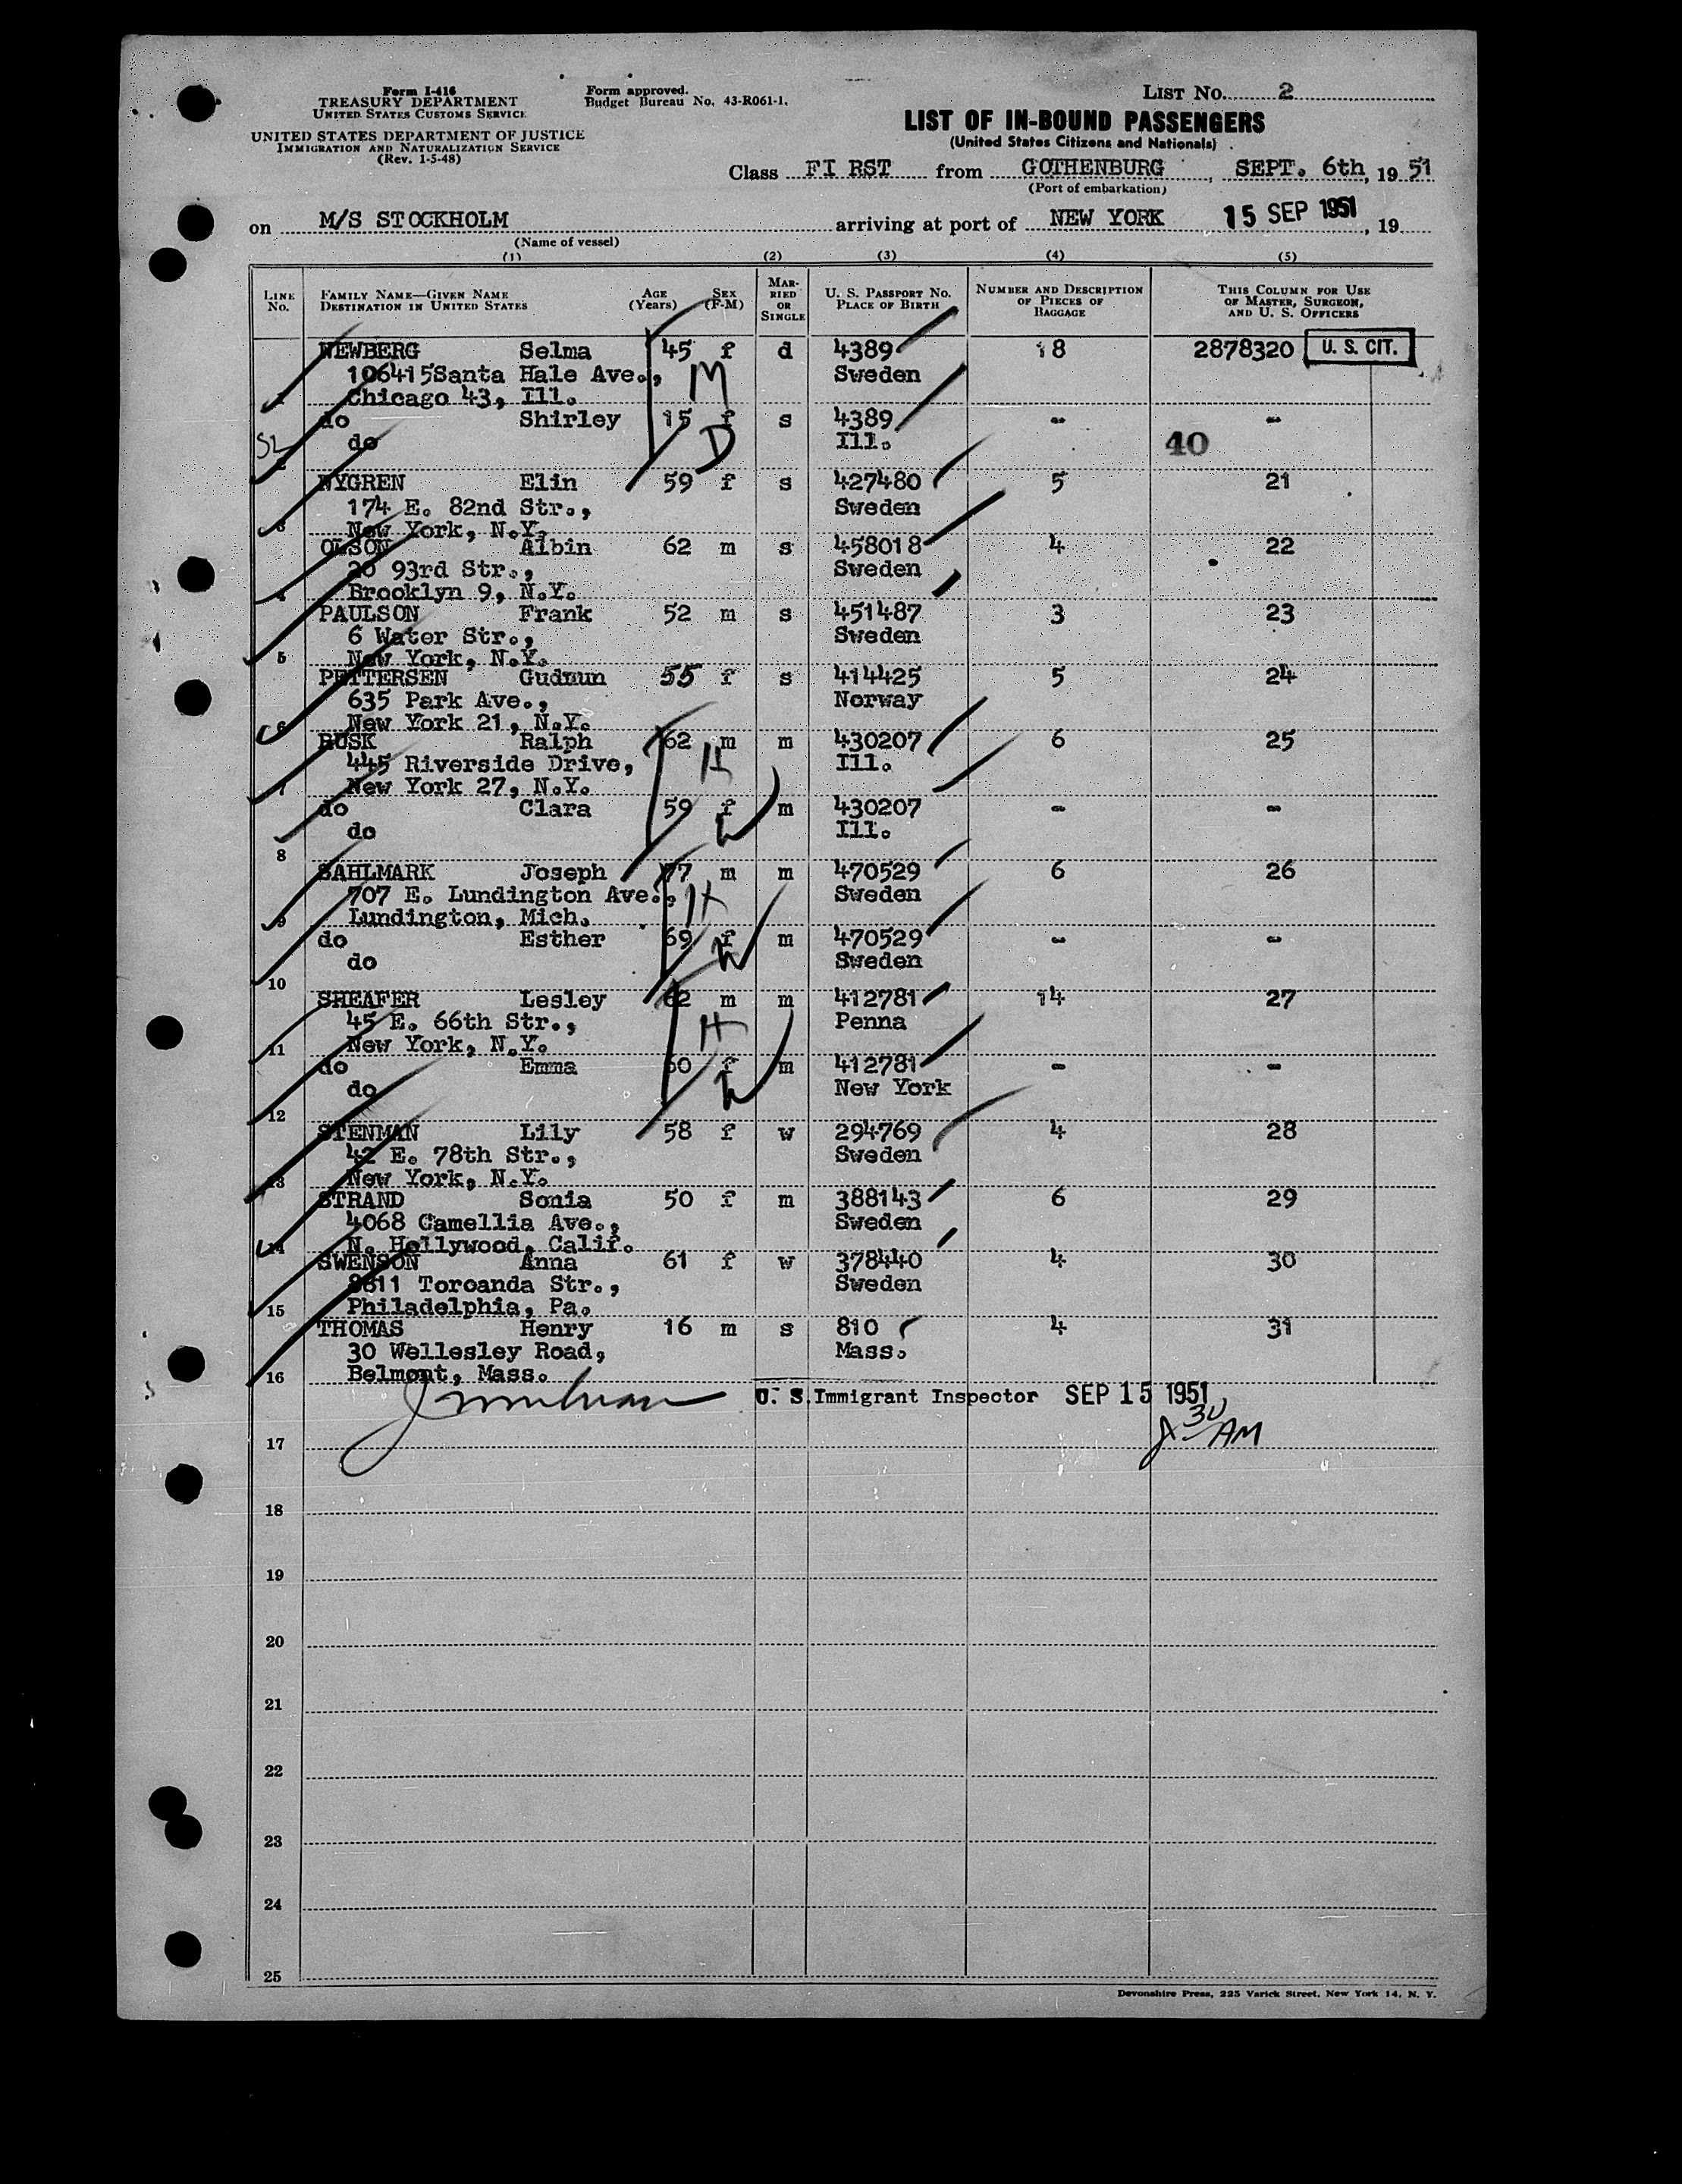 Form I-416
TREASURY DEPARTMENT
UNITED STATES CUSTOMS SERVICE
UNITED STATES DEPARTMENT OF JUSTICE
IMMIGRATION AND NATURALIZATION SERVICE
(Rev. 1-5-48)
Form approved.
Budget Bureau No. 43-R061-1.
LIST NO. 2
LIST OF IN-BOUND PASSENGERS
(United States Citizens and Nationals)
Class FI RST from GOTHENBURG, SEPT. 6th, 19 51
(Port of embarkation)
on M/S STOCKHOLM arriving at port of NEW YORK 15 SEP 1951, 19
(Name of vessel)
(1) (2) (3) (4) (5)
LINE NO. FAMILY NAME—GIVEN NAME DESTINATION IN UNITED STATES AGE (Years) SEX (F-M) MARRIED OR SINGLE U. S. PASSPORT NO. PLACE OF BIRTH NUMBER AND DESCRIPTION OF PIECES OF BAGGAGE THIS COLUMN FOR USE OF MASTER, SURGEON, AND U. S. OFFICERS
NEWBERG Selma 45 f d 4389 18 2878320 U. S. CIT.
106415Santa Hale Ave., M Sweden
1 Chicago 43, Ill.
do Shirley 15 f s 4389 - -
SL do D Ill. 40
2
NYGREN Elin 59 f s 427480 5 21
174 E. 82nd Str., Sweden
3 New York, N.Y.
OLSON Albin 62 m s 458018 4 22
20 93rd Str., Sweden
4 Brooklyn 9, N.Y.
PAULSON Frank 52 m s 451487 3 23
6 Water Str., Sweden
5 New York, N.Y.
PETTERSEN Gudmun 55 f s 414425 5 24
635 Park Ave., Norway
6 New York 21, N.Y.
RUSK Ralph 62 m m 430207 6 25
445 Riverside Drive, H Ill.
7 New York 27, N.Y.
do Clara 59 f m 430207 - -
do W Ill.
8
SAHLMARK Joseph 77 m m 470529 6 26
707 E. Lundington Ave., H Sweden
9 Lundington, Mich.
do Esther 69 f m 470529 - -
do W Sweden
10
SHEAFER Lesley 62 m m 412781 14 27
45 E. 66th Str., H Penna
11 New York, N.Y.
do Emma 60 f m 412781 - -
do W New York
12
STENMAN Lily 58 f w 294769 4 28
42 E. 78th Str., Sweden
13 New York, N.Y.
STRAND Sonia 50 f m 388143 6 29
4068 Camellia Ave., Sweden
14 N. Hollywood, Calif.
SWENSON Anna 61 f w 378440 4 30
8611 Toroanda Str., Sweden
15 Philadelphia, Pa.
THOMAS Henry 16 m s 810 4 31
30 Wellesley Road, Mass.
16 Belmont, Mass.
U. S. Immigrant Inspector SEP 15 1951
8 30 AM
17
18
19
20
21
22
23
24
25
Devonshire Press, 225 Varick Street, New York 14, N. Y.